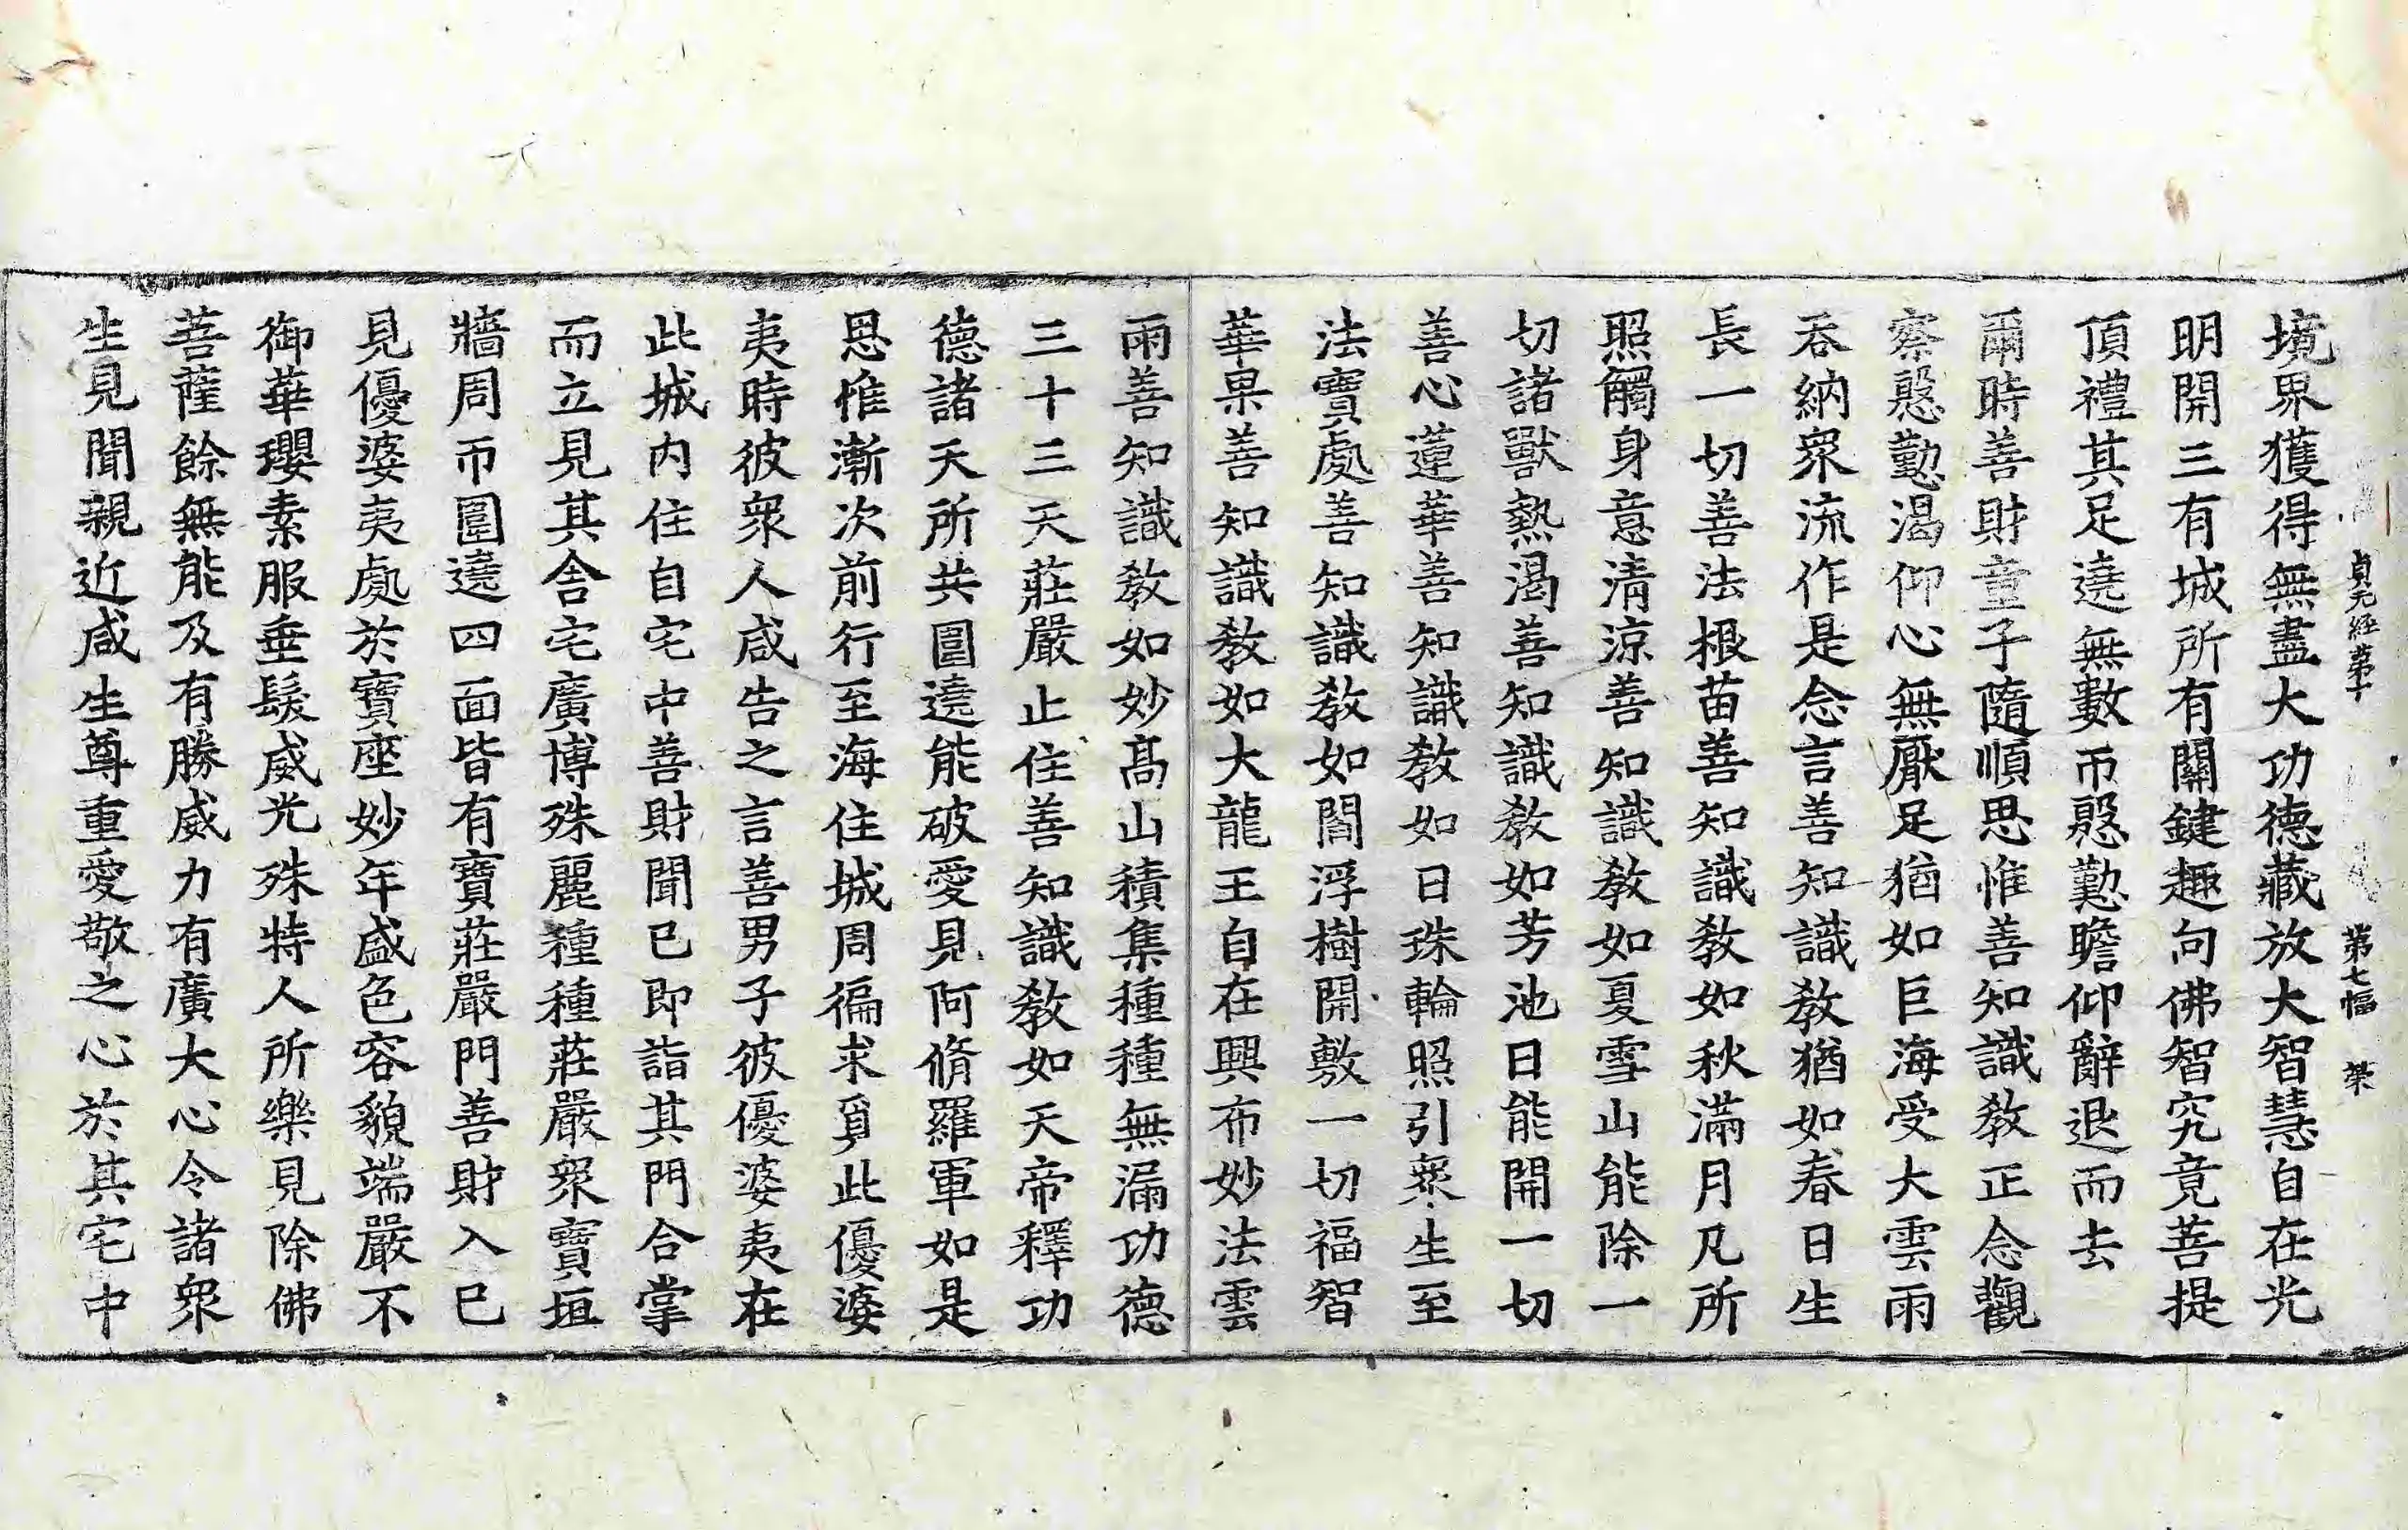 貞元經第十 第七幅 榮
境界獲得無盡大功德藏放大智慧自在光
明開三有城所有關鍵趣向佛智究竟菩提
頂禮其足遶無數帀慇懃瞻仰辭退而去
爾時善財童子隨順思惟善知識教正念觀
察慇懃渴仰心無厭足猶如巨海受大雲雨
吞納衆流作是念言善知識教猶如春日生
長一切善法根苗善知識教如秋滿月凡所
照觸身意清涼善知識教如夏雪山能除一
切諸獸熱渴善知識教如芳池日能開一切
善心蓮華善知識教如日珠輪照引衆生至
法寶處善知識教如閻浮樹開敷一切福智
華果善知識教如大龍王自在興布妙法雲
雨善知識教如妙高山積集種種無漏功德
三十三天莊嚴止住善知識教如天帝釋功
德諸天所共圍遶能破愛見阿脩羅軍如是
思惟漸次前行至海住城周徧求覓此優婆
夷時彼衆人咸告之言善男子彼優婆夷在
此城内住自宅中善財聞已即詣其門合掌
而立見其舍宅廣博殊麗種種莊嚴衆寶垣
牆周帀圍遶四面皆有寶莊嚴門善財入已
見優婆夷處於寶座妙年盛色容貌端嚴不
御華瓔素服垂髮威光殊特人所樂見除佛
菩薩餘無能及有勝威力有廣大心令諸衆
生見聞親近咸生尊重愛敬之心於其宅中